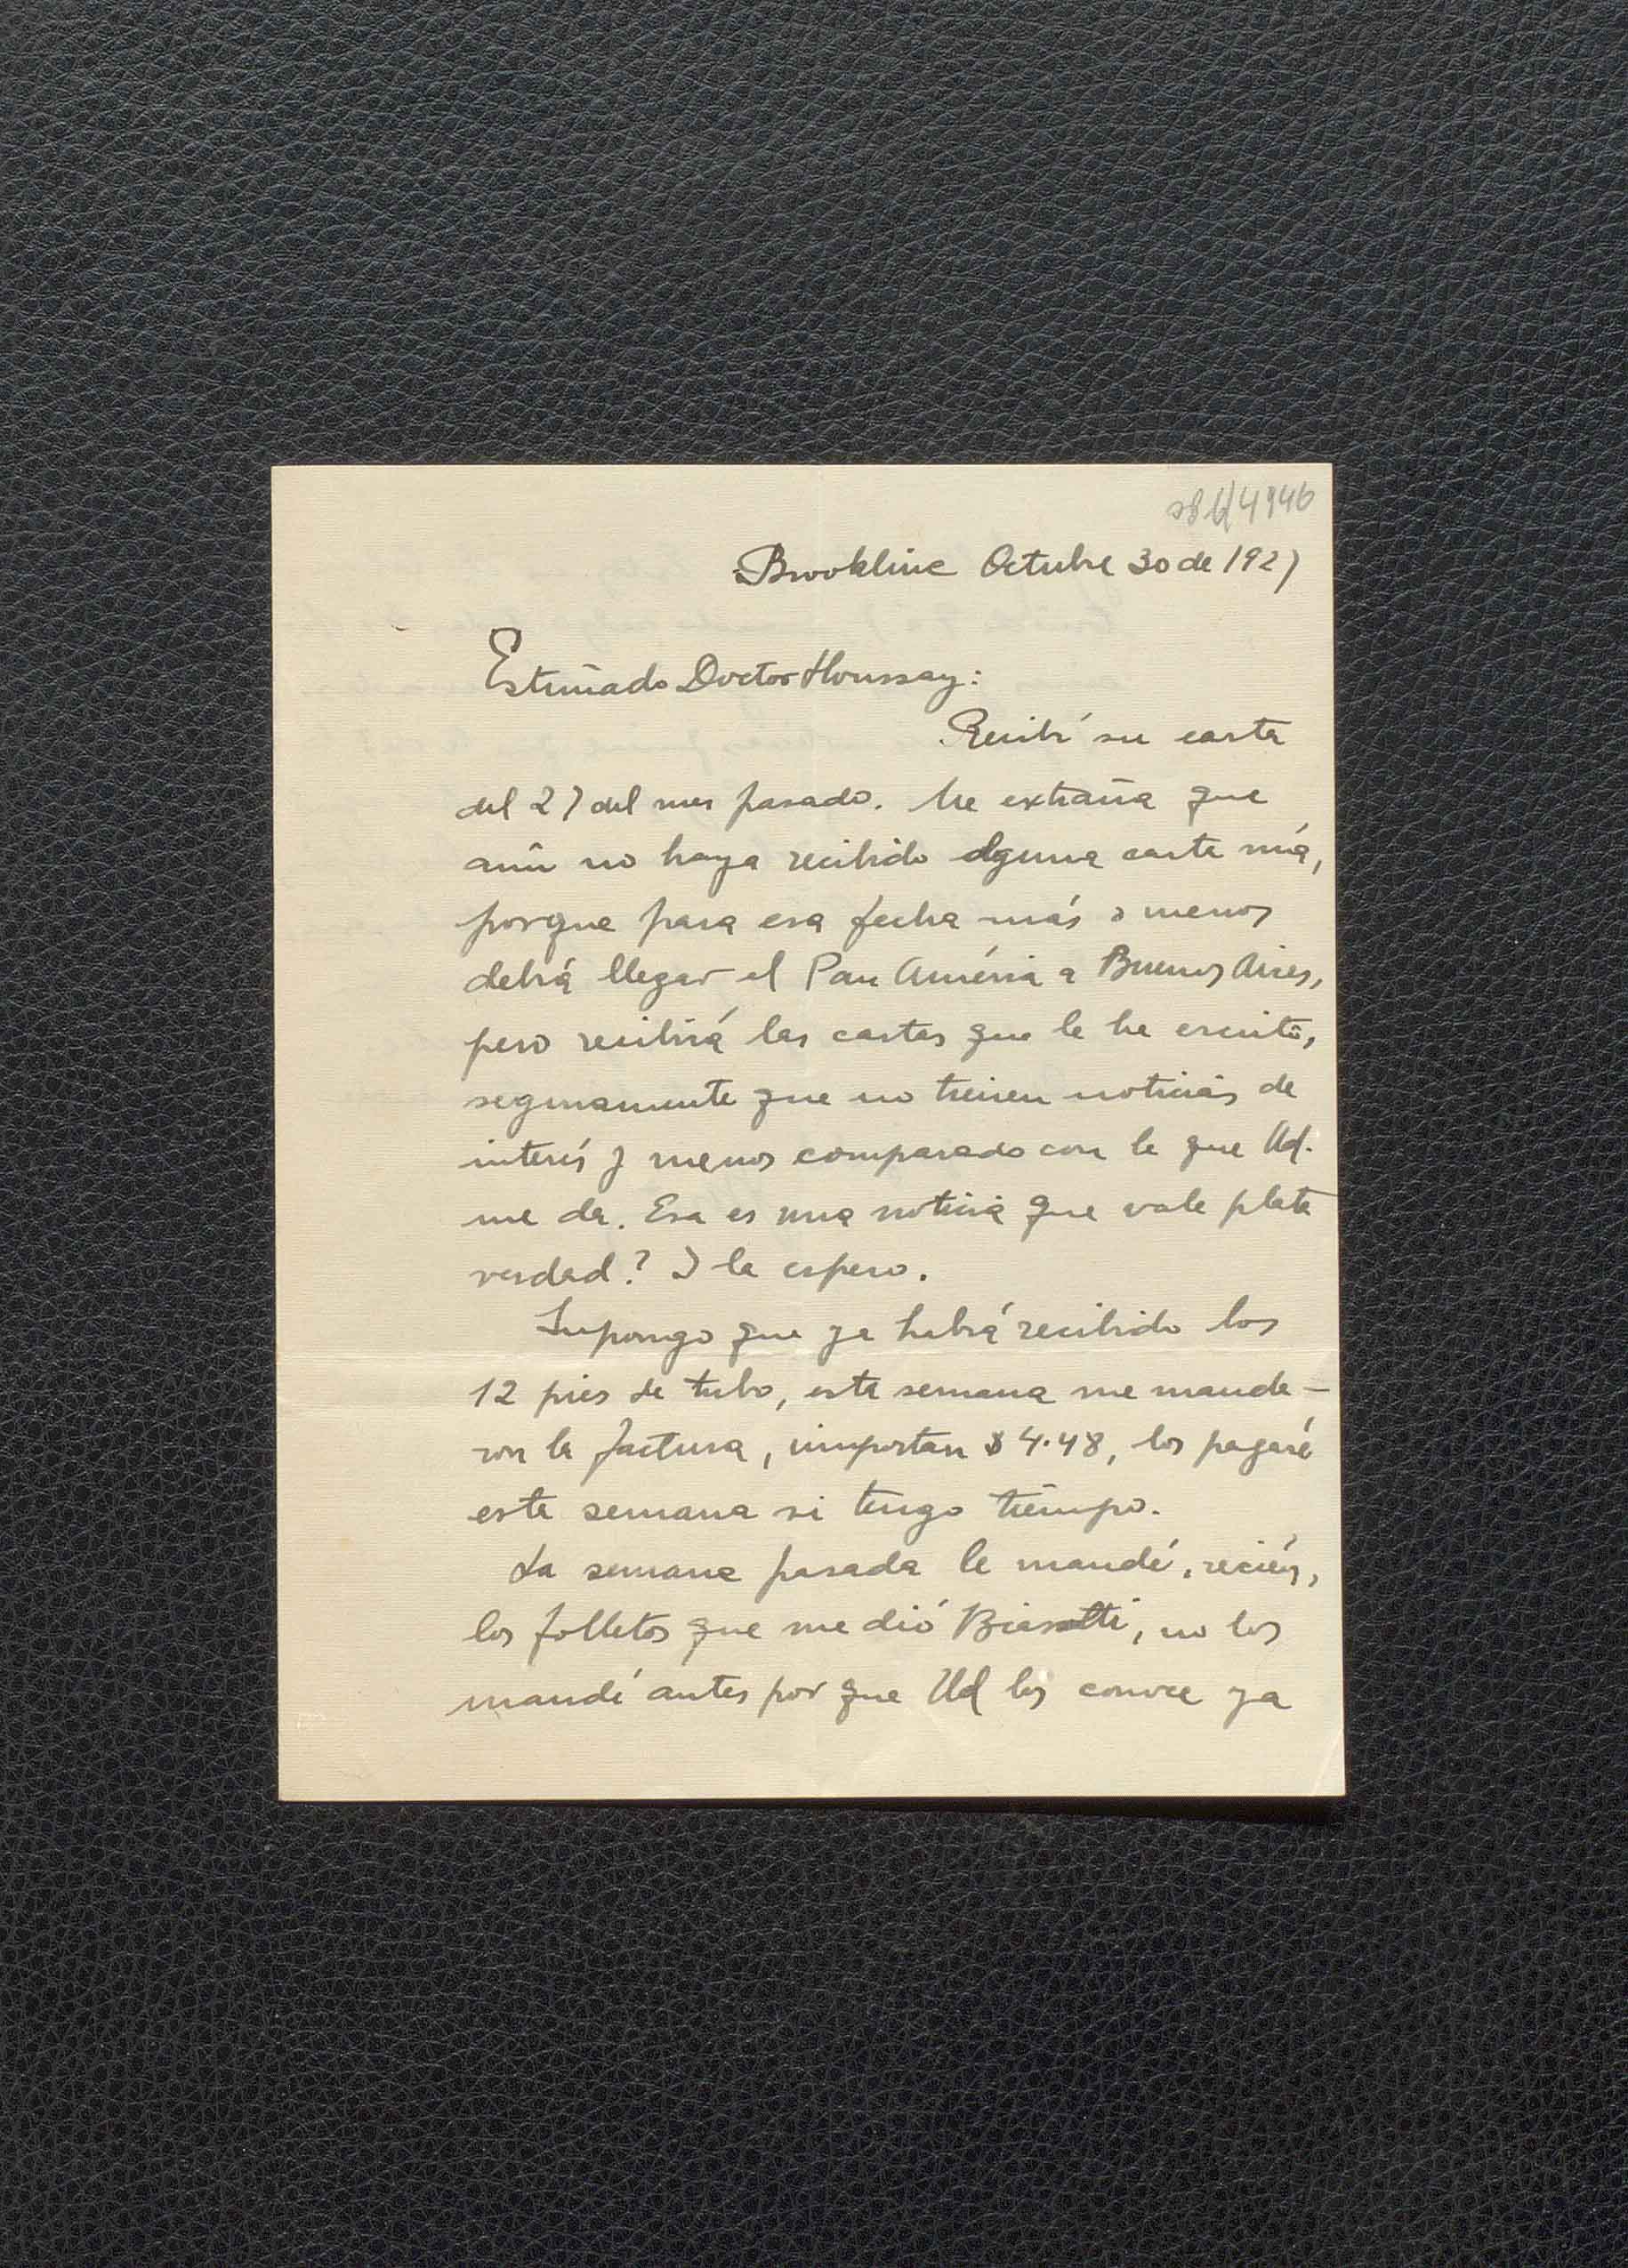 Brookline Octubre 30 de 1927
Estimado Doctor Houssay:
Recibí su carta
del 27 del mes pasado. Me extraña que
aún no haya recibido alguna carta mía,
porque para esa fecha más o menos
debrá llegar el Pan América a Buenos Aires,
pero recibirá las cartas que le he escrito,
seguramente que no tienen noticias de
interés y menos comparado con la que Ud.
me da. Esa es una noticia que vale plata
verdad? Y la espero.
Supongo que ya habrá recibido los
12 pies de tubo, esta semana me manda-
ron la factura, importan $ 4.48, los pagaré
esta semana si tengo tiempo.
La semana pasada le mandé, recién,
los folletos que me dió Biasotti, no los
mandé antes por que Ud los conoce ya